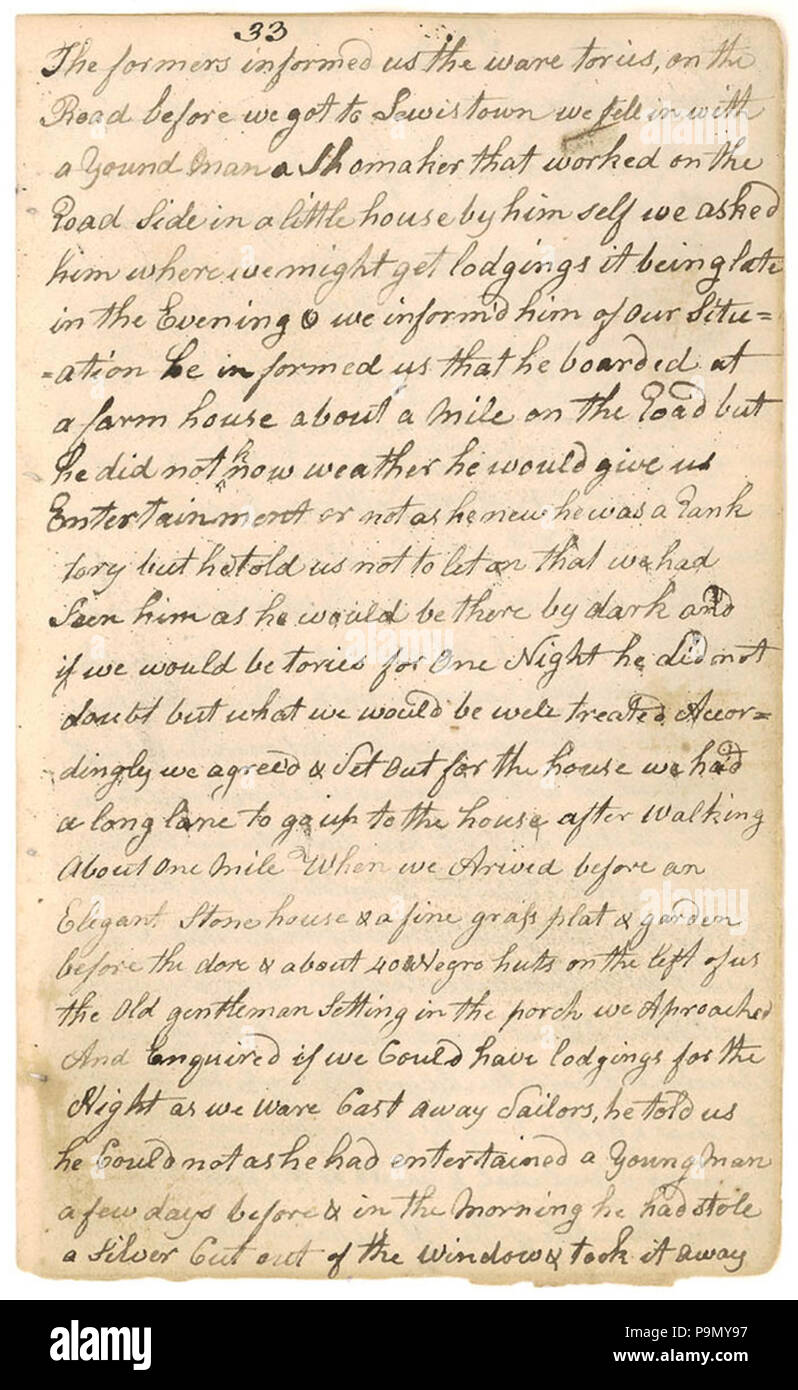 33
The formers informed us the ware tories, on the
Road before we got to Lewistown we fell in with
a Yound Man a Shomaker that worked on the
Road Side in a little house by him self we asked
him where we might get lodgings it being late
in the Evening & we inform'd him of our Situ=
=ation he informed us that he boarded at
a farm house about a Mile on the Road but
he did not know weather he would give us
Entertainment or not as he new he was a Rank
tory but he told us not to let on that we had
Seen him as he would be there by dark and
if we would be tories for One Night he did not
doubt but what we would be well treated Accor=
dingly we agreed & Set Out for the house we had
a long lane to go up to the house after Walking
About One Mile When we Arived before an
Elegant Stone house & a fine grass plat & garden
before the dore & about 40 Negro huts on the left of us
the Old gentleman Setting in the porch we Aproached
And Enquired if we Could have lodgings for the
Night as we ware Cast away Sailors, he told us
he Could not as he had entertained a Young Man
a few days before & in the Morning he had stole
a Silver Cut out of the window & took it away
alamy
Image ID: P9MY97
www.alamy.com